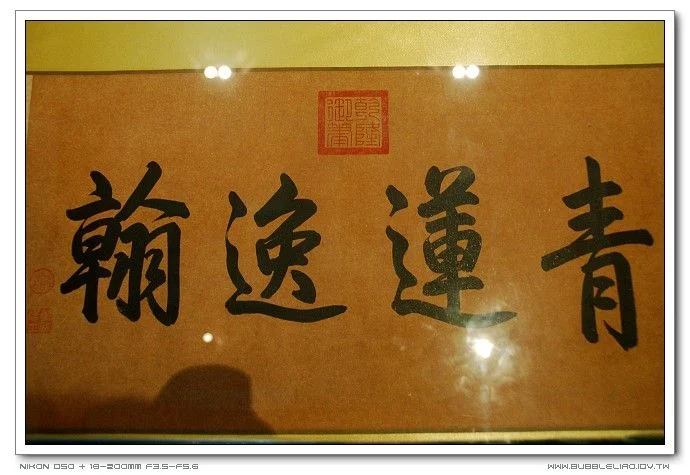 青蓮逸翰
乾隆御筆
NIKON D50 + 18-200MM F3.5-F5.6
WWW.BUBBLELIAO.IDV.TW